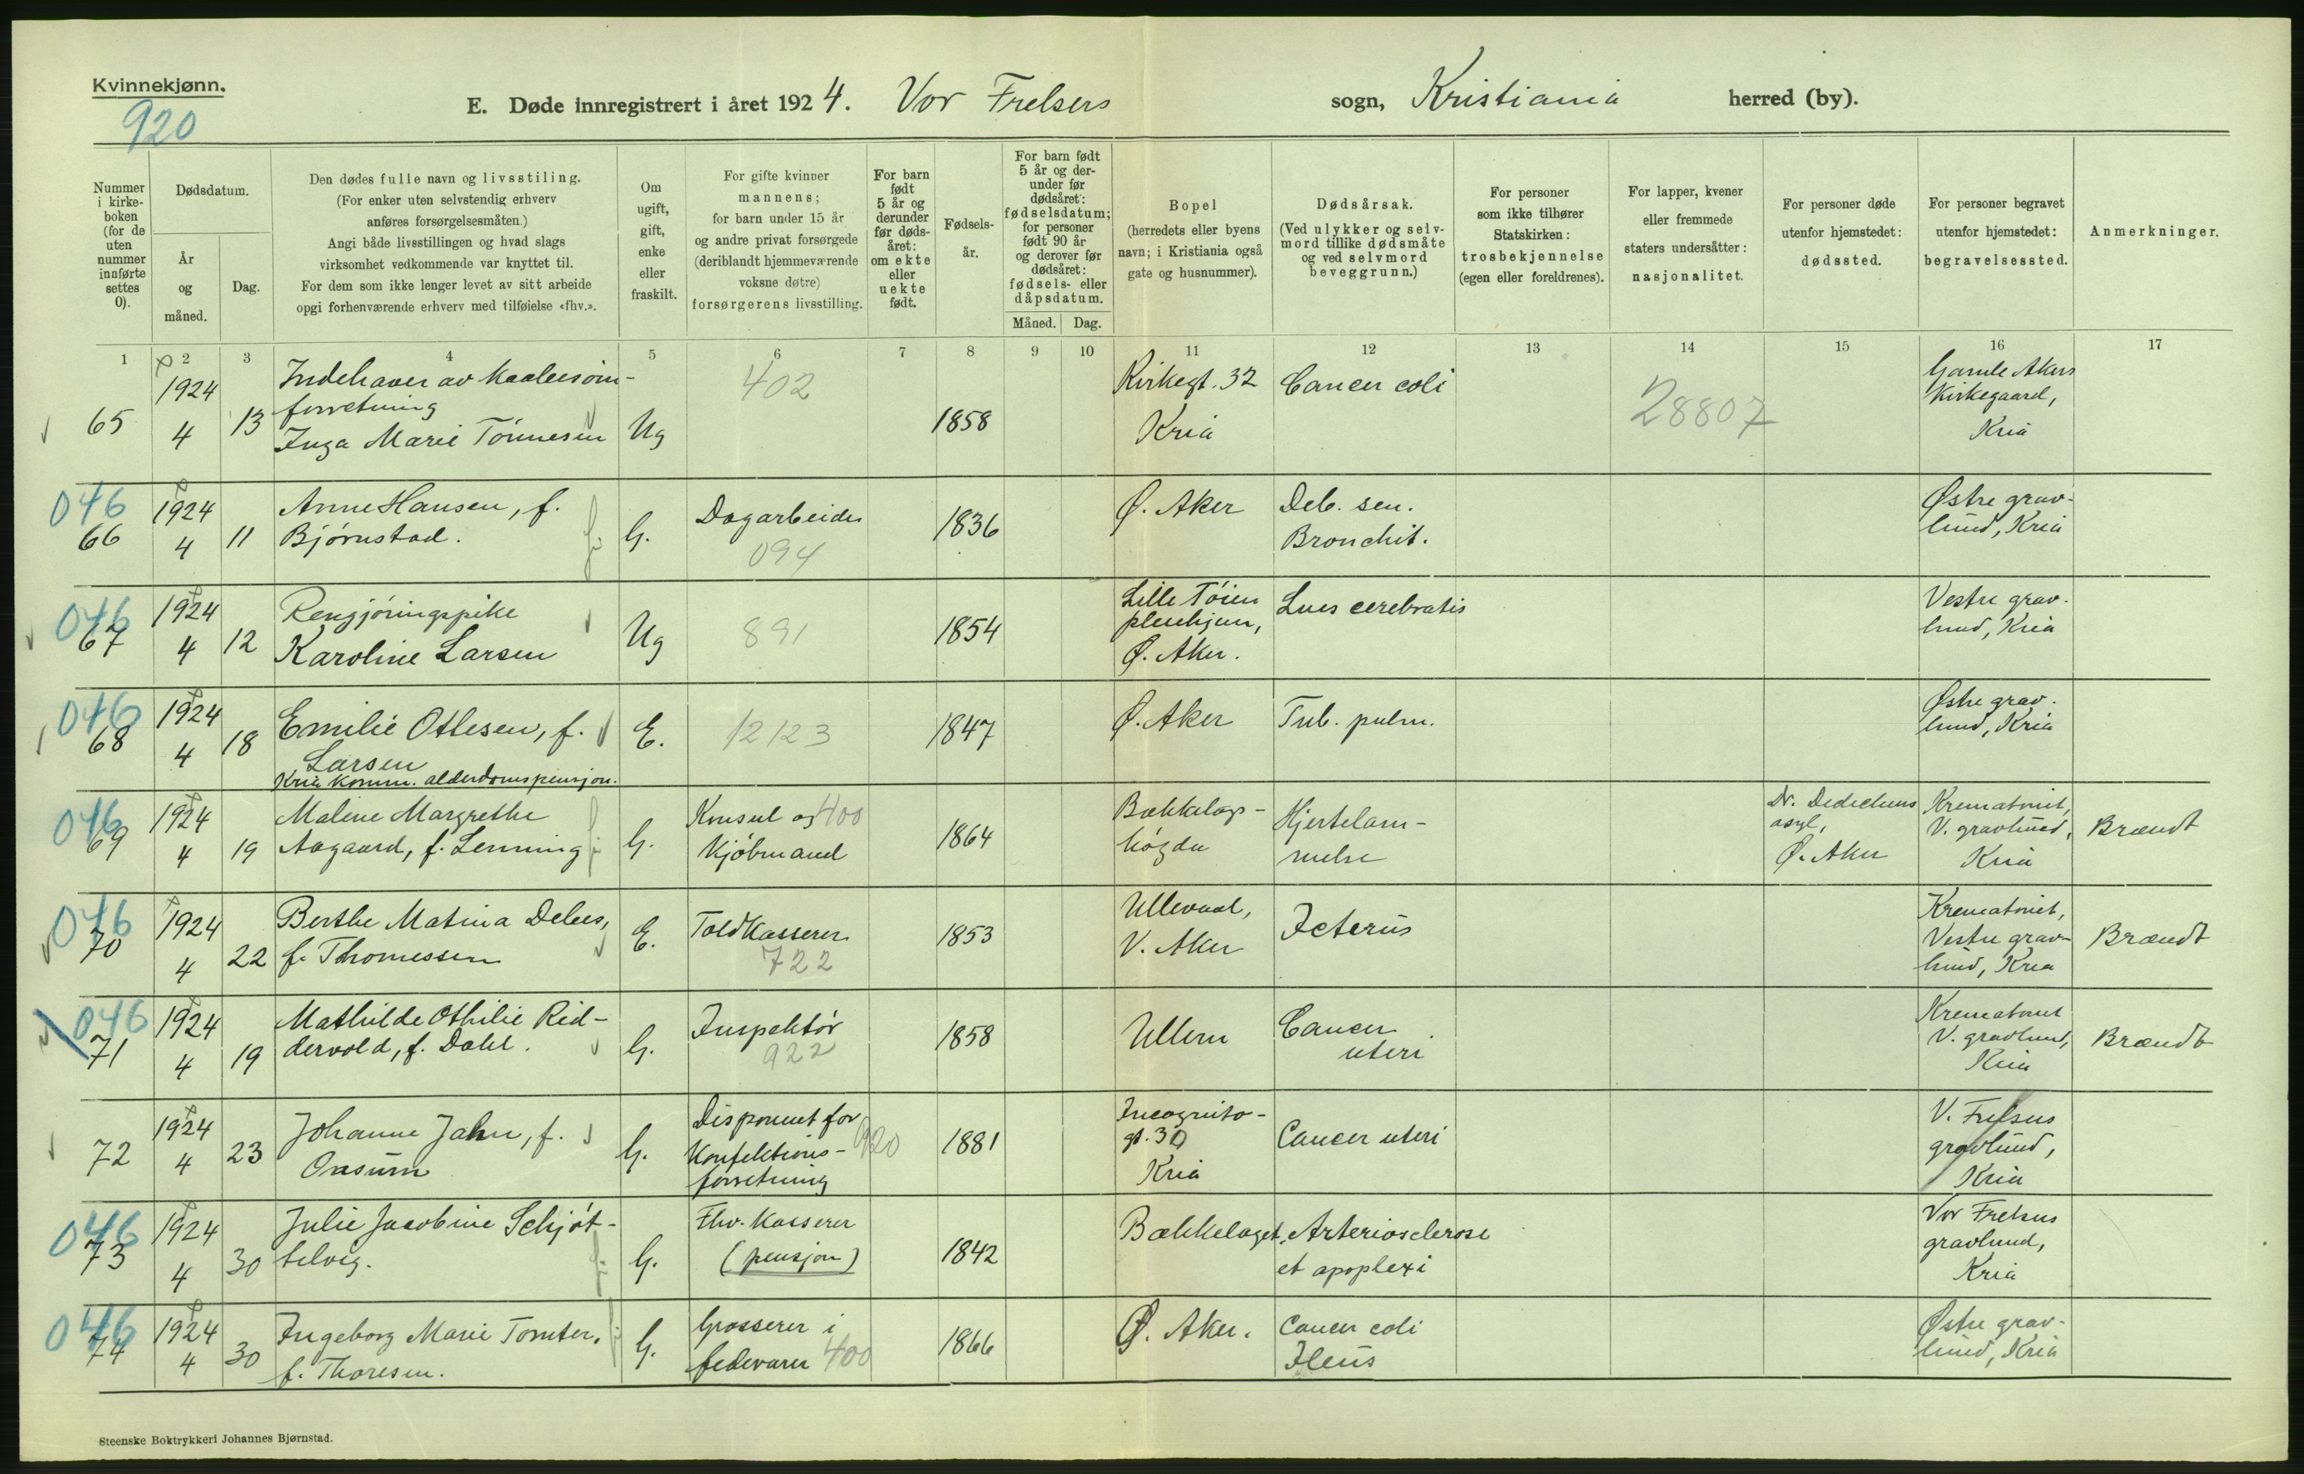 Kvinnekjønn.
920
E. Døde innregistrert i året 1924. Vor Frelsers sogn, Kristiania herred (by).
Nummer i kirke-boken (for de uten nummer innførte settes 0).
Dødsdatum.
År og måned.
Dag.
Den dødes fulle navn og livsstiling.
(For enker uten selvstendig erhverv
anføres forsørgelsesmåten.)
Angi både livsstillingen og hvad slags
virksomhet vedkommende var knyttet til.
For dem som ikke lenger levet av sitt arbeide
opgi forhenværende erhverv med tilføielse «fhv.».
Om ugift, gift, enke eller fraskilt.
For gifte kvinner
mannens;
for barn under 15 år
og andre privat forsørgede
(deriblandt hjemmeværende
voksne døtre)
forsørgerens livsstilling.
For barn født 5 år og derunder før døds-året: om ekte eller uekte født.
Fødsels-år.
For barn født 5 år og der-under før dødsåret: fødselsdatum; for personer født 90 år og derover før dødsåret: fødsels- eller dåpsdatum.
Måned. Dag.
Bopel
(herredets eller byens
navn; i Kristiania også
gate og husnummer).
Dødsårsak.
(Ved ulykker og selv-
mord tillike dødsmåte
og ved selvmord
beveggrunn.)
For personer
som ikke tilhører
Statskirken:
trosbekjennelse
(egen eller foreldrenes).
For lapper, kvener
eller fremmede
staters undersåtter:
nasjonalitet.
For personer døde
utenfor hjemstedet:
dødssted.
For personer begravet
utenfor hjemstedet:
begravelsessted.
Anmerkninger.
1 2 3 4 5 6 7 8 9 10 11 12 13 14 15 16 17
65 1924 4 13
Indehaver av kaalesøm-
forretning
Inga Marie Tönnesen
Ug 402 1858
Kirkegt. 32
Kria
Cancer coli
28807
Gamle Akers
Kirkegaard,
Kria
046
66 1924 4 11
Anne Hansen, f.
Bjørnstad.
G. Dagarbeider
094
1836
Ø. Aker
Deb. sen.
Bronchit.
Østre grav-
lund, Kria
046
67 1924 4 12
Rengjöringspike
Karoline Larsen
Ug 891 1854
Lille Töien
pleiehjem,
Ø. Aker.
Lues cerebralis
Vestre grav-
lund, Kria
046
68 1924 4 18
Emilie Ottesen, f.
Larsen
Kria komm. alderdomspensjon.
E. 12123 1847
Ø. Aker
Tub. pulm.
Østre grav-
lund, Kria
046
69 1924 4 19
Maline Margrethe
Aagaard, f. Lenning
G. Konsul og 400
Kjöbmand
1864
Bækkelags-
högda
Hjertelam-
melse
Dr. Dedichens
asyl,
Ø. Aker
Krematoriet,
V. gravlund,
Kria
Brændt
046
70 1924 4 22
Berthe Matina Debes,
f. Thomessen
E. Toldkasserer
722
1853
Ullevaal,
V. Aker
Icterus
Krematoriet,
Vestre grav-
lund, Kria
Brændt
046
71 1924 4 19
Mathilde Othilie Rid-
dervold, f. Dahl.
G. Inspektör
922
1858
Ullern
Cancer
uteri
Krematoriet
V. gravlund,
Kria
Brændt
72 1924 4 23
Johanne Jahn, f.
Onsum
G. Disponent for
Konfektions-
forretning
920
1881
Incognito-
gt. 30
Kria
Cancer uteri
V. Frelsers
gravlund,
Kria
046
73 1924 4 30
Julie Jacobine Schjöt-
telvig.
G. Fhv. Kasserer
(pensjon)
1842
Bækkelaget.
Arteriosclerose
et apoplexi
Vor Frelsers
gravlund,
Kria
046
74 1924 4 30
Ingeborg Marie Tomter,
f. Thoresen.
G. Grosserer i
fedevarer 400
1866
Ø. Aker.
Cancer coli
Ileus
Østre grav-
lund, Kria
Steenske Boktrykkeri Johannes Bjørnstad.